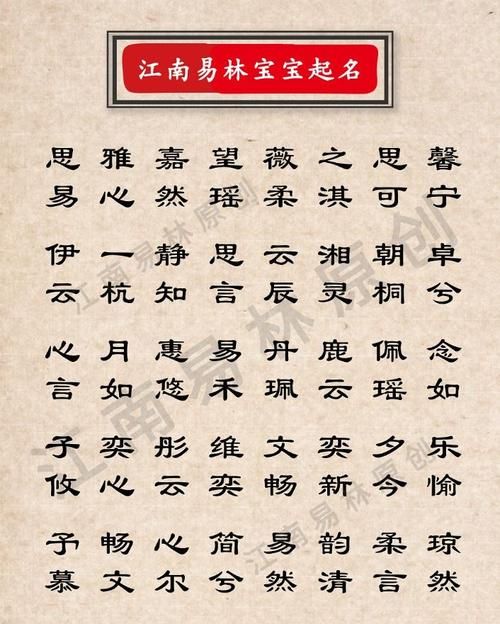 江南易林宝宝起名
思 雅 嘉 望 薇 之 思 馨
易 心 然 瑶 柔 淇 可 宁
伊 一 静 思 云 湘 朝 卓
云 杭 知 言 辰 灵 桐 兮
心 月 惠 易 丹 鹿 佩 念
言 如 悠 禾 珮 云 瑶 如
子 奕 彤 维 文 奕 夕 乐
攸 心 云 奕 畅 新 今 愉
予 畅 心 简 易 韵 柔 琼
慕 文 尔 兮 然 清 言 然
江南易林原创
江南易林原创
江南易林原创